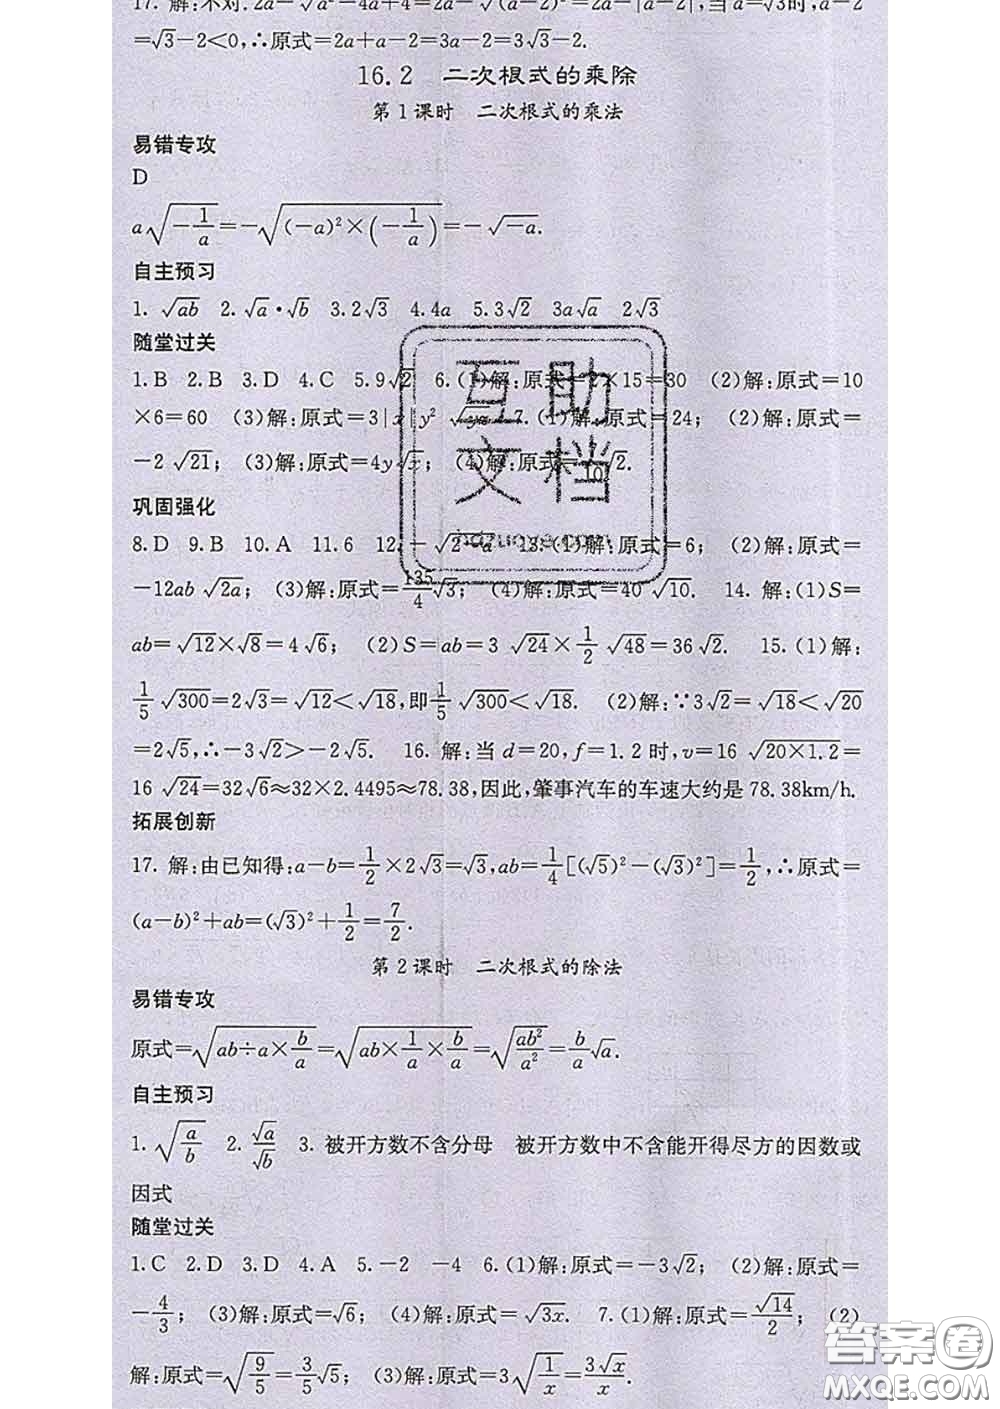 17. 解:不对.2a-√a²-4a+4=2a-√(a-2)²=2a-|a-2|,当a=√3时,a-2
=√3-2<0,∴原式=2a+a-2=3a-2=3√3-2.
16.2 二次根式的乘除
第1课时 二次根式的乘法
易错专攻
D
a√(-1/a)=-√((-a)²×(-1/a))=-√-a.
自主预习
1. √ab 2. √a·√b 3.2√3 4.4a 5.3√2 3a√a 2√3
随堂过关
1.B 2.B 3.D 4.C 5.9√2 6.(1)解:原式=2×15=30 (2)解:原式=10
×6=60 (3)解:原式=3|x|y² 7.(1)解:原式=24; (2)解:原式=
-2√21; (3)解:原式=4y√x; (4)解:原式=
巩固强化
8.D 9.B 10.A 11.6 12.-√2-a 13.(1)解:原式=6; (2)解:原式=
-12ab√2a; (3)解:原式=135/4√3; (4)解:原式=40√10. 14. 解:(1)S=
ab=√12×√8=4√6; (2)S=ab=3√24×1/2√48=36√2. 15.(1)解:
1/5√300=2√3=√12<√18,即1/5√300<√18. (2)解:∵3√2=√18<√20
=2√5,∴-3√2>-2√5. 16. 解:当d=20,f=1.2时,v=16√20×1.2=
16√24=32√6≈32×2.4495≈78.38,因此,肇事汽车的车速大约是78.38km/h.
拓展创新
17. 解:由已知得:a-b=1/2×2√3=√3,ab=1/4[(√5)²-(√3)²]=1/2,∴原式=
(a-b)²+ab=(√3)²+1/2=7/2.
第2课时 二次根式的除法
易错专攻
原式=√(ab÷a×b/a)=√(ab×1/a×b/a)=√(ab²/a²)=b/a√a.
自主预习
1. √(a/b) 2. √a/√b 3. 被开方数不含分母 被开方数中不含能开得尽方的因数或
因式
随堂过关
1.C 2.D 3.D 4.A 5.-2 -4 6.(1)解:原式=-3√2; (2)解:原式=
-4/3; (3)解:原式=√6; (4)解:原式=√3x. 7.(1)解:原式=√14/2; (2)
解:原式=√(9/5)=3/5√5; (3)解:原式=3√(1/x)=3√x/x.
互助
文档
答案圈
MXQE.COM